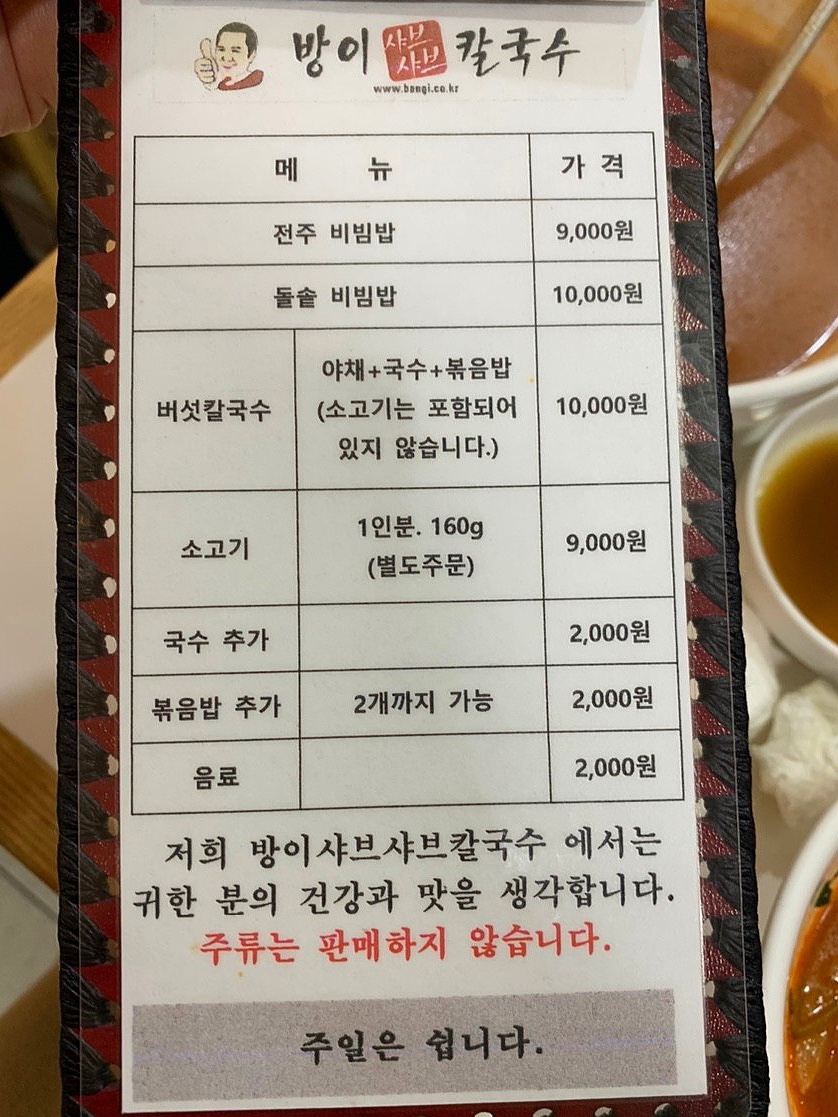 방이 샤브샤브 칼국수
www.bangi.co.kr
메 뉴 가 격
전주 비빔밥 9,000원
돌솥 비빔밥 10,000원
버섯칼국수 야채+국수+볶음밥 (소고기는 포함되어 있지 않습니다.) 10,000원
소고기 1인분. 160g (별도주문) 9,000원
국수 추가 2,000원
볶음밥 추가 2개까지 가능 2,000원
음료 2,000원
저희 방이샤브샤브칼국수 에서는
귀한 분의 건강과 맛을 생각합니다.
주류는 판매하지 않습니다.
주일은 쉽니다.